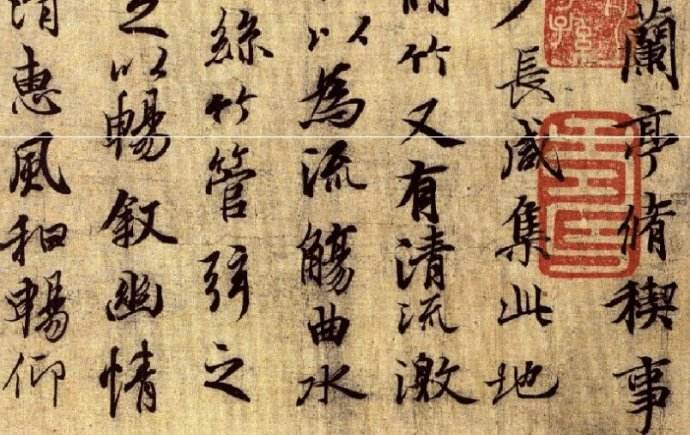 蘭亭脩稧事
長咸集此地
竹又有清流激
以為流觴曲水
絲竹管弦之
足以暢叙幽情
清惠風和暢仰